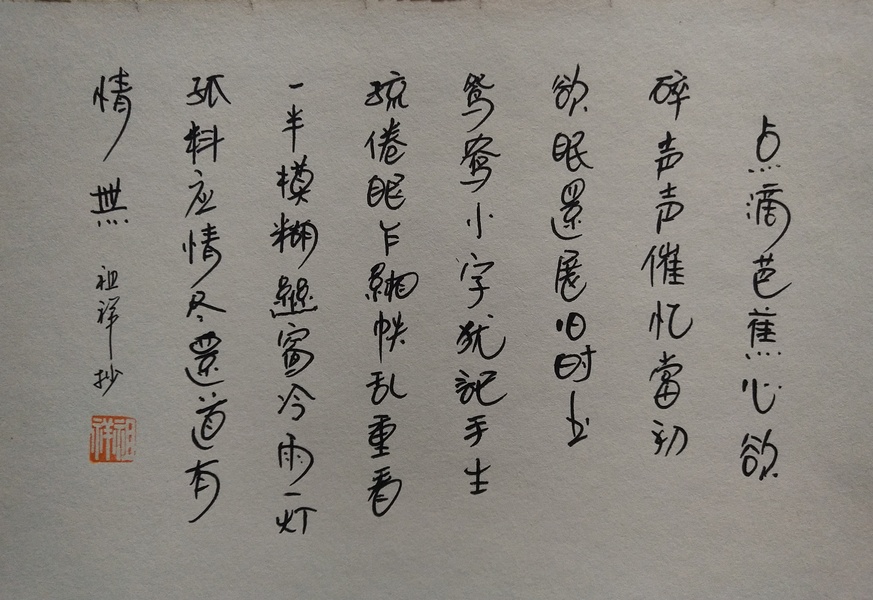 点滴芭蕉心欲
碎声声催忆當初
欲眠還展旧时书
鸳鸯小字犹記手生
疏倦眼乍缃帙乱重看
一半模糊幽窗冷雨一灯
孤料应情尽還道有
情無
祖祥抄
祖祥